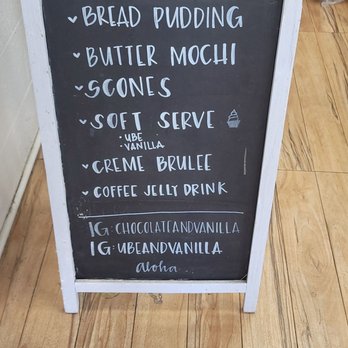 BREAD PUDDING
BUTTER MOCHI
SCONES
SOFT SERVE
• UBE
• VANILLA
CREME BRULEE
COFFEE JELLY DRINK
IG: CHOCOLATEANDVANILLA
IG: UBEANDVANILLA
aloha